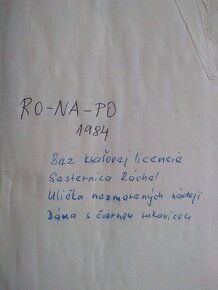 RO-NA-PO
1984
Bez kráľovej licencie
Sesternica Ráchel
Ulička nezmerených nádejí
Dáma s čiernou rukavicou